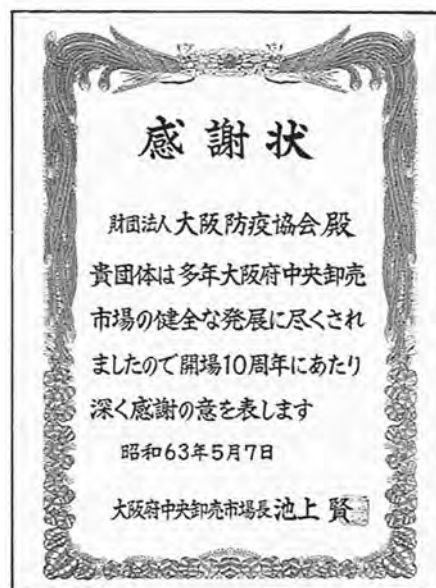 感謝状
財団法人大阪防疫協会殿
貴団体は多年大阪府中央卸売
市場の健全な発展に尽くされ
ましたので開場10周年にあたり
深く感謝の意を表します
昭和63年5月7日
大阪府中央卸売市場長池上賢